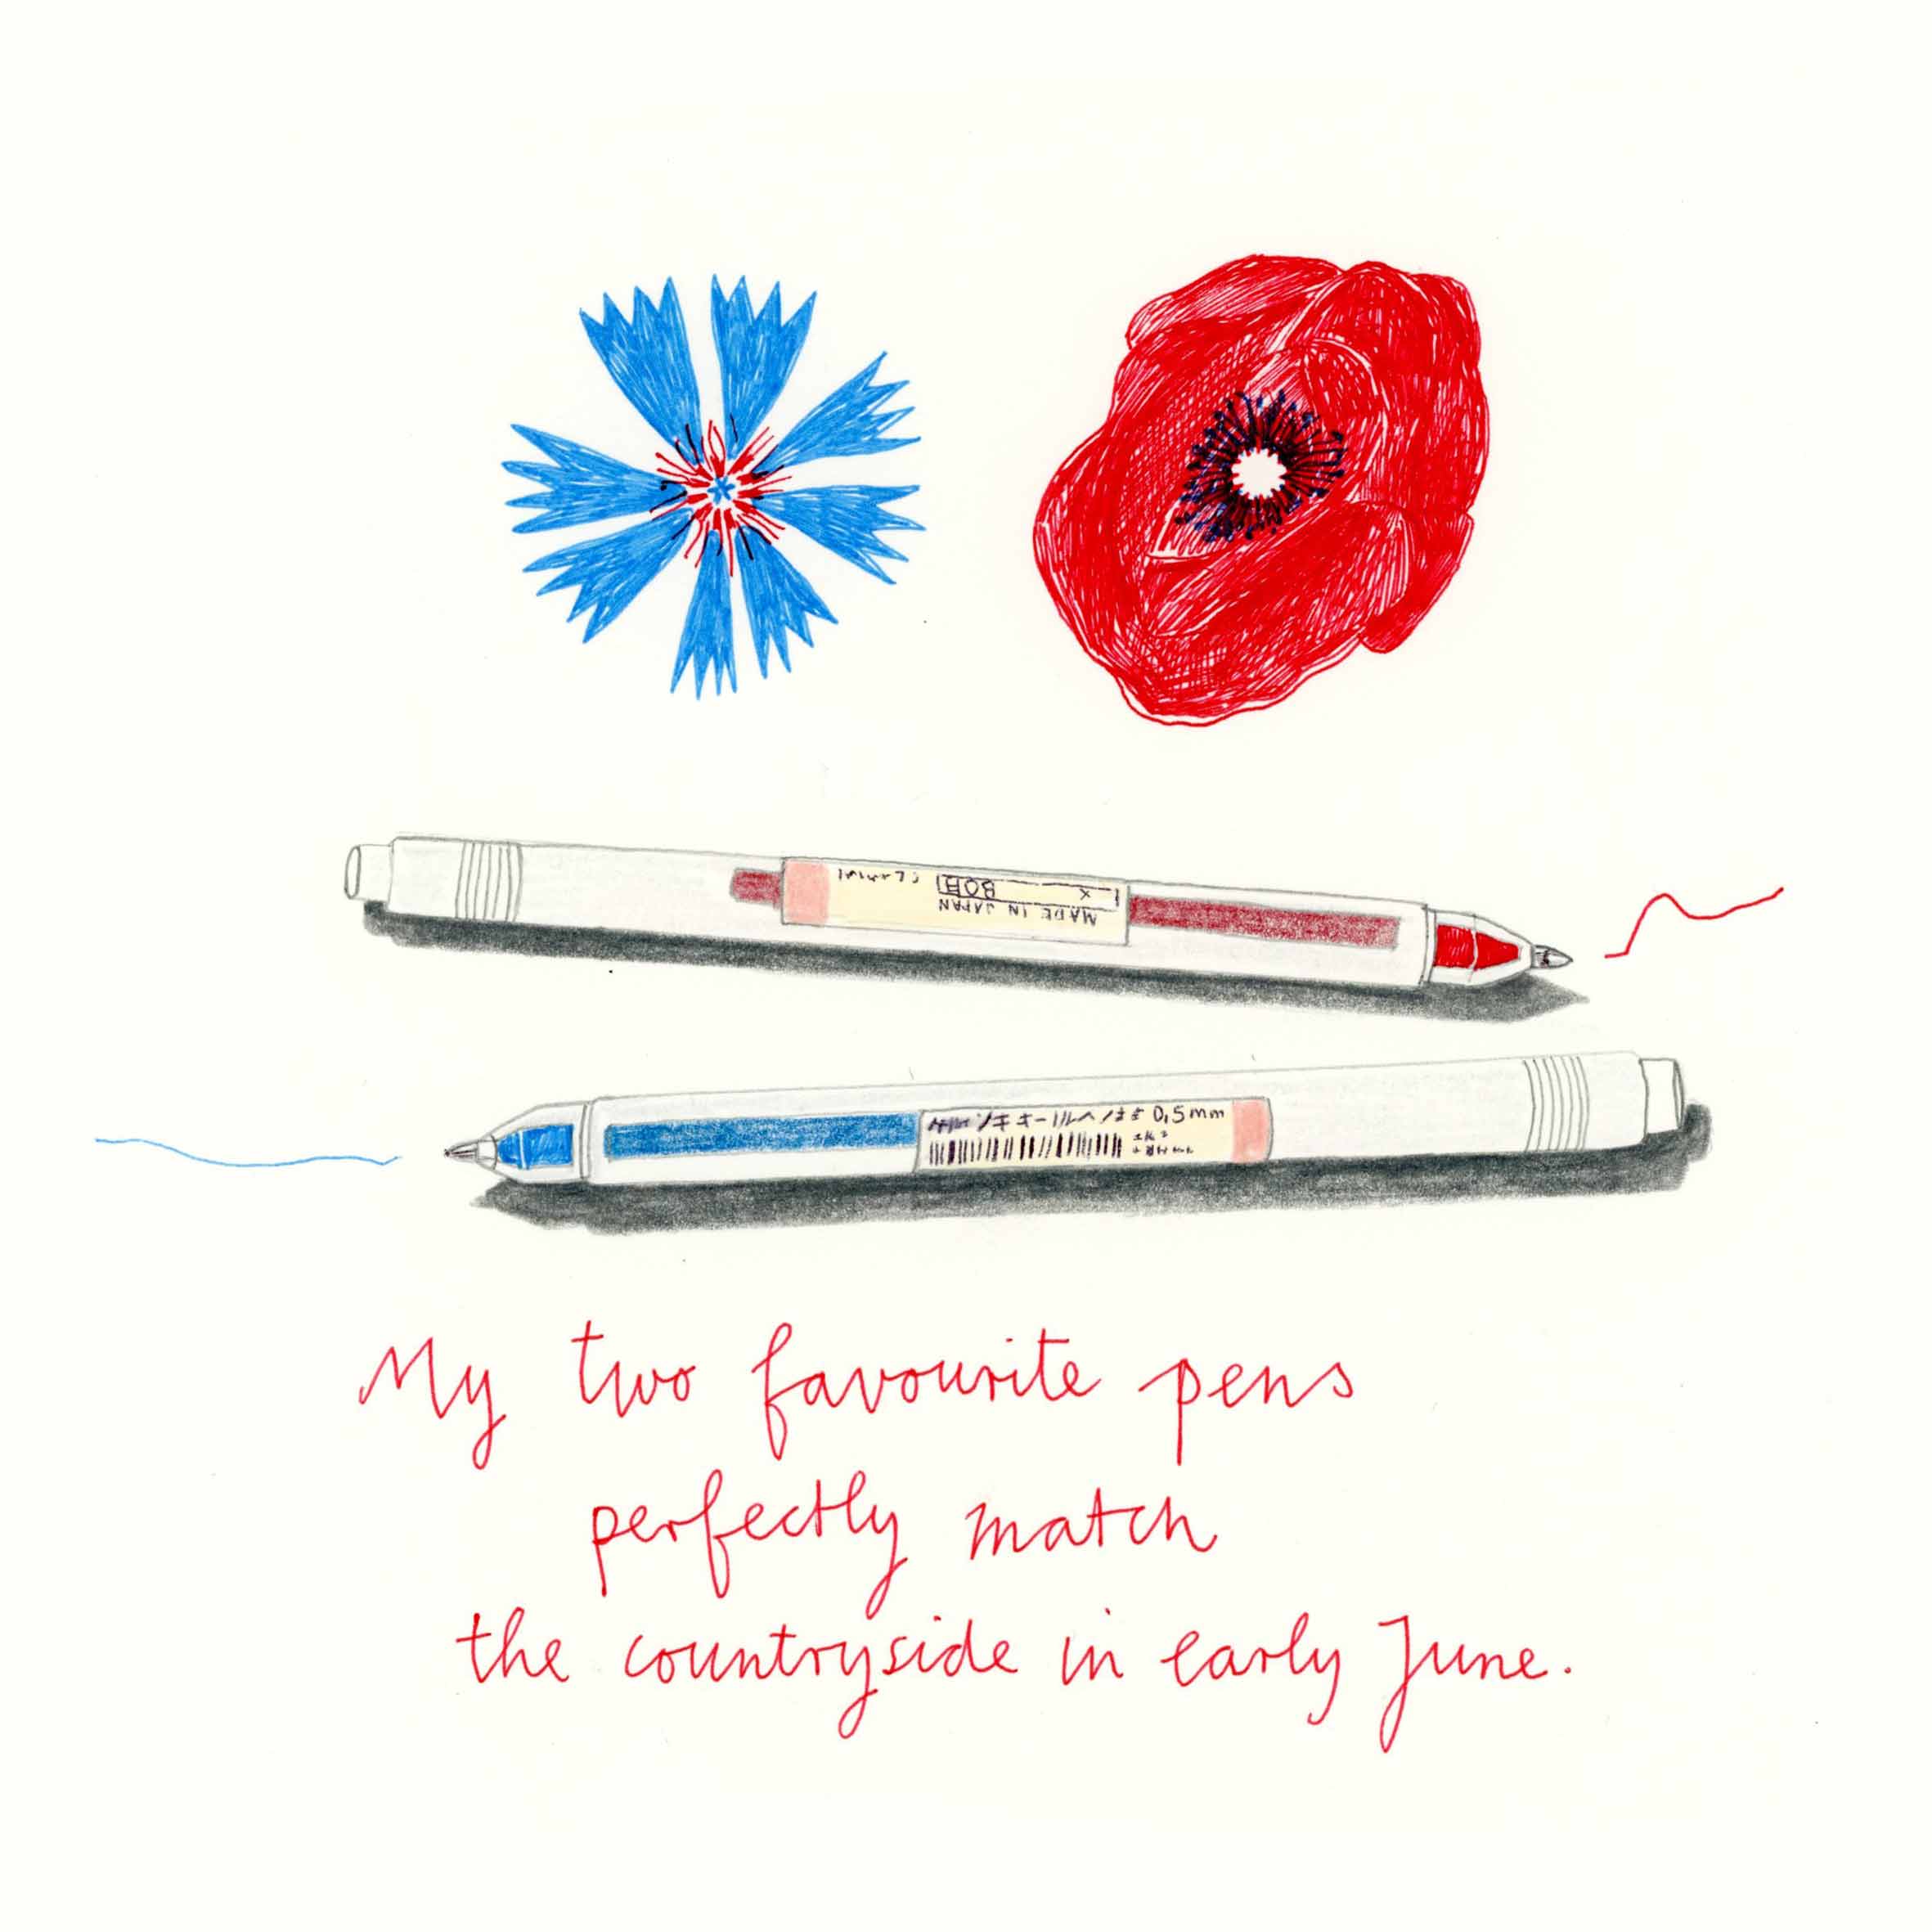 MADE IN JAPAN
0,5mm
My two favourite pens
perfectly match
the countryside in early June.